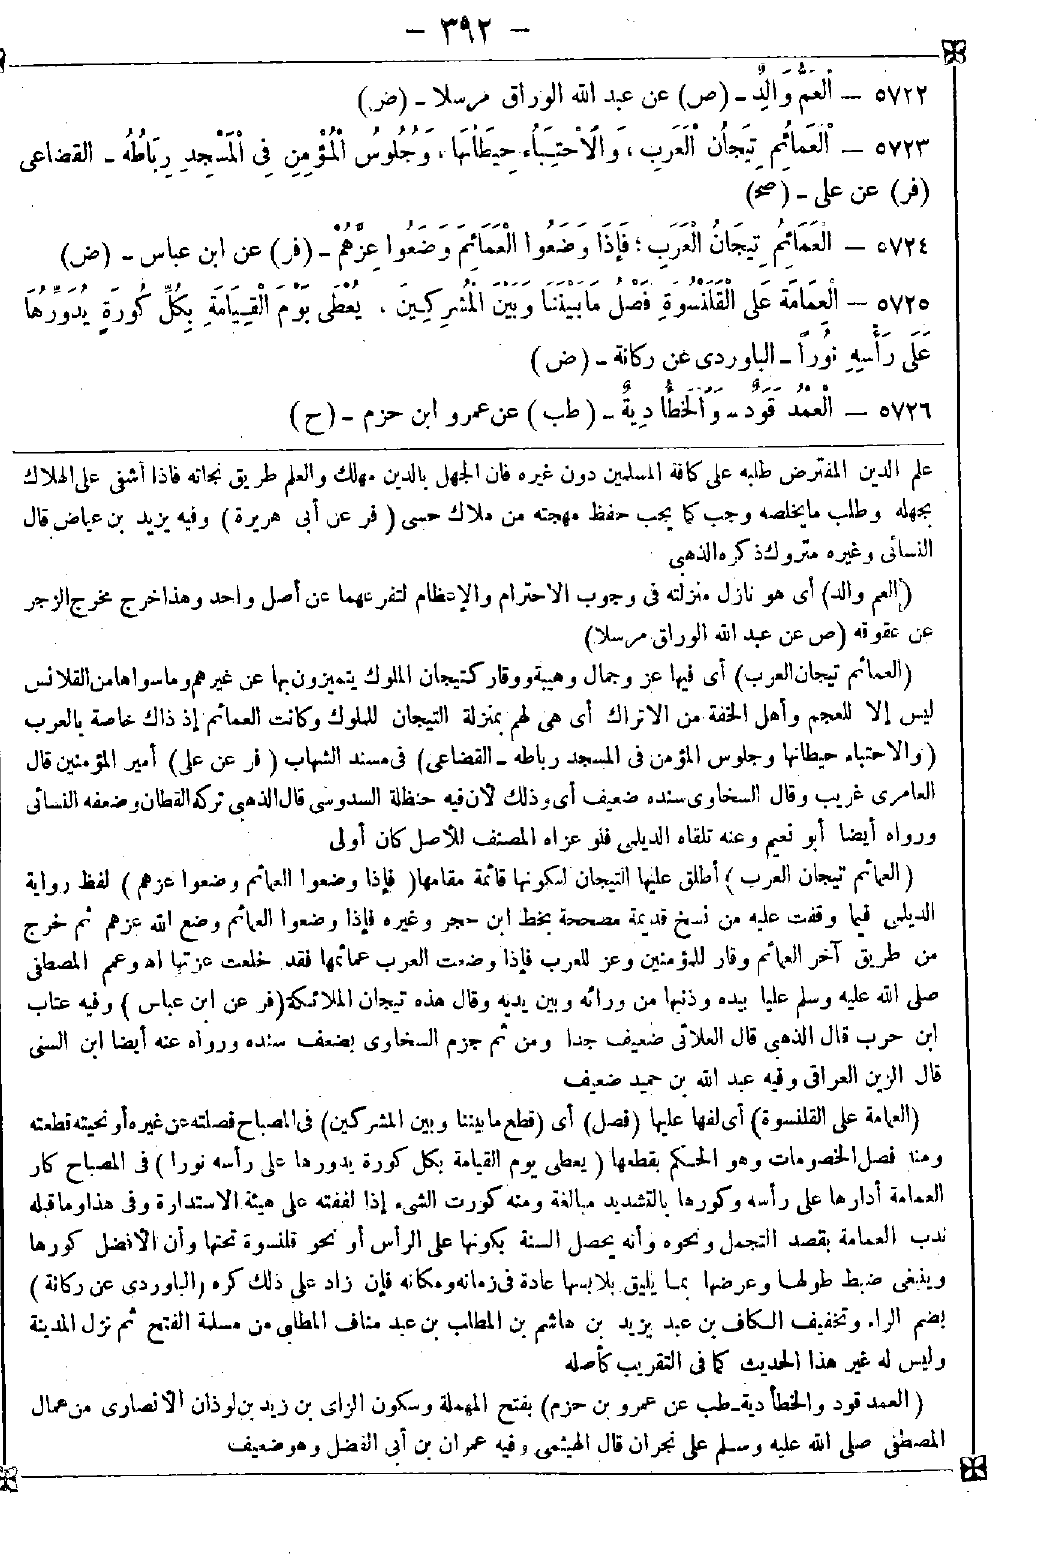 - ٣٩٢ -
٥٧٢٢ — الْعَمُّ وَالِدٌ - (ص) عن عبد الله الوراق مرسلا - (ض)
٥٧٢٣ — الْعَمَائِمُ تِيجَانُ الْعَرَبِ، وَالِاحْتِبَاءُ حِيطَانُهَا، وَجُلُوسُ الْمُؤْمِنِ فِي الْمَسْجِدِ رِبَاطُهُ - القضاعى
(فر) عن على - (صح)
٥٧٢٤ — الْعَمَائِمُ تِيجَانُ الْعَرَبِ؛ فَإِذَا وَضَعُوا الْعَمَائِمَ وَضَعُوا عِزَّهُمْ - (فر) عن ابن عباس - (ض)
٥٧٢٥ — الْعِمَامَةُ عَلَى الْقَلَنْسُوَةِ فَصْلُ مَا بَيْنَنَا وَبَيْنَ الْمُشْرِكِينَ، يُعْطَى يَوْمَ الْقِيَامَةِ بِكُلِّ كُورَةٍ يُدَوِّرُهَا
عَلَى رَأْسِهِ نُوراً - الباوردى عن ركانة - (ض)
٥٧٢٦ — الْعَمْدُ قَوَدٌ - وَالْخَطَأُ دِيَةٌ - (طب) عن عمرو ابن حزم - (ح)
علم الدين المفترض طلبه على كافة المسلمين دون غيره فان الجهل بالدين مهلك والعلم طريق نجاته فاذا أشفى على الهلاك
بجهله وطلب ما يخلصه وجب كما يجب حفظ مهجته من هلاك حسى (فر عن أبى هريرة) وفيه يزيد بن عياض قال
النسائى وغيره متروك ذكره الذهبى
(العم والد) أى هو نازل منزلته فى وجوب الاحترام والإعظام لتفرعهما عن أصل واحد وهذا خرج مخرج الزجر
عن عقوقه (ص عن عبد الله الوراق مرسلا)
(العمائم تيجان العرب) أى فيها عز وجمال وهيبة ووقار كتيجان الملوك يتميزون بها عن غيرهم وما سواها من القلانس
ليس إلا للعجم وأهل الخفة من الاتراك أى هى لهم بمنزلة التيجان للملوك وكانت العمائم إذ ذاك خاصة بالعرب
(والاحتباء حيطانها وجلوس المؤمن فى المسجد رباطه - القضاعى) فى مسند الشهاب (فر عن على) أمير المؤمنين قال
العامرى غريب وقال السخاوى سنده ضعيف أى وذلك لأن فيه حنظلة السدوسى قال الذهبى تركه القطان وضعفه النسائى
ورواه أيضا أبو نعيم وعنه تلقاه الديلمى فلو عزاه المصنف للأصل كان أولى
(العمائم تيجان العرب) أطلق عليها التيجان لكونها قائمة مقامها (فإذا وضعوا العمائم وضعوا عزهم) لفظ رواية
الديلمى فيما وقفت عليه من نسخ قديمة مصححة بخط ابن حجر وغيره فإذا وضعوا العمائم وضع الله عزهم ثم خرج
من طريق آخر العمائم وقار للمؤمنين وعز للعرب فإذا وضعت العرب عمائمها فقد خلعت عزتها اه وعمم المصطفى
صلى الله عليه وسلم عليا بيده وذنبها من ورائه وبين يديه وقال هذه تيجان الملائكة (فر عن ابن عباس) وفيه عتاب
ابن حرب قال الذهبى قال العلائى ضعيف جدا ومن ثم جزم السخاوى بضعف سنده ورواه عنه أيضا ابن السنى
قال الزين العراقى وفيه عبد الله بن حميد ضعيف
(العمامة على القلنسوة) أى لفها عليها (فصل) أى (قطع ما بيننا وبين المشركين) فى المصباح فصلته عن غيره أو نحيته قطعته
ومنه فصل الخصومات وهو الحكم بقطعها (يعطى يوم القيامة بكل كورة يدورها على رأسه نورا) فى المصباح كار
العمامة أدارها على رأسه وكورها بالتشديد مبالغة ومنه كورت الشىء إذا لففته على هيئة الاستدارة وفى هذا وما قبله
ندب العمامة بقصد التجمل ونحوه وأنه يحصل السنة بكونها على الرأس أو نحو قلنسوة تحتها وأن الأفضل كورها
وينبغى ضبط طولها وعرضها بما يليق بلابسها عادة فى زمانه ومكانه فإن زاد على ذلك كره (الباوردى عن ركانة)
بضم الراء وتخفيف الكاف بن عبد يزيد بن هاشم بن المطلب بن عبد مناف المطلبى من مسلمة الفتح ثم نزل المدينة
وليس له غير هذا الحديث كما فى التقريب كأصله
(العمد قود والخطأ دية - طب عن عمرو بن حزم) بفتح المهملة وسكون الزاى بن زيد بن لوذان الأنصارى من عمال
المصطفى صلى الله عليه وسلم على نجران قال الهيثمى وفيه عمران بن أبى الفضل وهو ضعيف